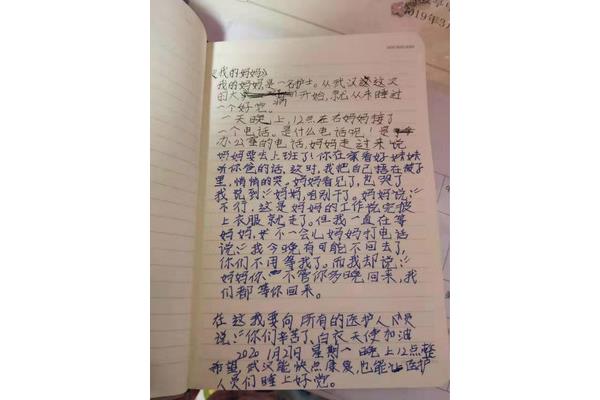 2019年3月
《我的妈妈》
我的妈妈,是一名护士。从武汉这次
的大病开始,就从未睡过
一个好觉。
一天晚上,12点左右妈妈接了
一个电话。是什么电话呢!是
办公室的电话,妈妈走过来说
妈妈要去上班了!你在家看好妹妹
听你爸的话,这时,我把自己捂在被子
里,悄悄的哭。妈妈看见了,也哭了
我说到:"妈妈,咱别干了。妈妈说:"
不行,这是妈妈的工作说完披
上衣服就走了。但我一直在等
妈妈,不一会儿妈妈打电话
说:"我今晚有可能不回去了,
你们不用等我了。而我却说:"
妈妈你 不管你多晚回来,我
们都等你回来。
在这我要向所有的医护人员
说:"你们辛苦了、白衣天使加油
2020 1月21日 星期一 晚上12点整
希望,武汉能快点康复,也能让医护
人员们睡上好觉。